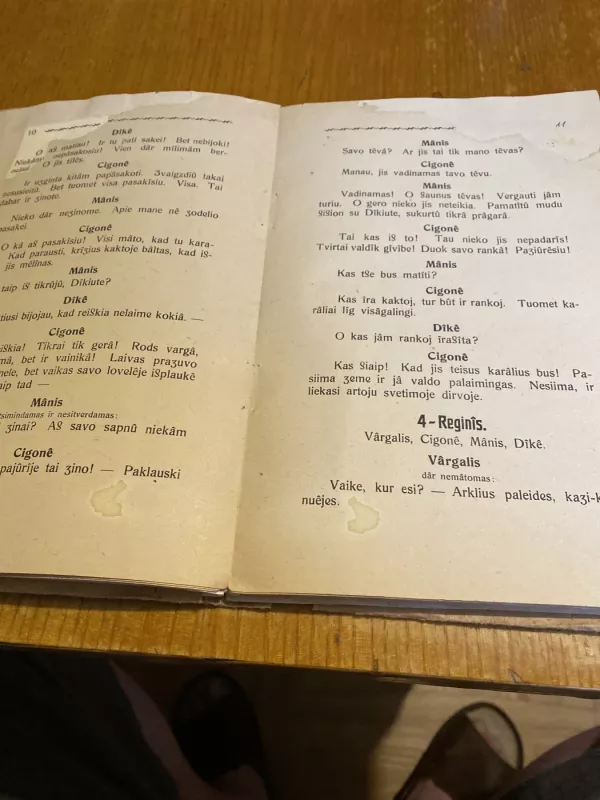 10
Dîkê
O aš matìau! Ir tu pati sakei! Bet nebijoki!
Niekám papāsakosiu! Vien dār mîlimám ber-
O jis tîlês.
Cigonê
Ir uʒginta kitám papāsakoti. Ʒvaigʒdîû takai
sosusieitâ. Bet tuomet visa pasakîsiu. Visa. Tai
dabar ir ʒinote.
Mânis
Nieko dār neʒinome. Apie mane nê ʒodelio
pasakei.
Cigonê
O kâ aš pasakîsiu? Visi mâto, kad tu kara-
Kad parausti, krîʒius kaktoje bâltas, kad iš-
jis mêlînas.
Mânis
taip iš tikrûjû, Dîkiute?
Dîkê
tiusi bijojau, kad reiškia nelaime kokiâ. —
Cigonê
iškia! Tikrai tik gerâ! Rods vargâ,
mâ, bet ir vainikâ! Laivas praʒuvo
mele, bet vaikas savo lovelêje išplaukê
aip tad —
Mânis
tsimindamas ir nesitverdamas:
ʒinai? Aš savo sapnû niekâm
Cigonê
pajûrîje tai ʒino! — Paklauski
11
Mânis
Savo têvâ? Ar jis tai tik mano têvas?
Cigonê
Manau, jis vadinamas tavo têvu.
Mânis
Vadinamas! O šaunus têvas! Vergauti jâm
turiu. O gero nieko jis neteikia. Pamatîtû mudu
šišion su Dîkiute, sukurtû tikrâ prâgarâ.
Cigonê
Tai kas iš to! Tau nieko jis nepadarîs!
Tvirtai valdîk gîvîbe! Duok savo rankâ! Paʒiûrêsiu!
Mânis
Kas tše bus matîti?
Cigonê
Kas îra kaktoj, tur bût ir rankoj. Tuomet ka-
râliai lîg visâgalingi.
Dîkê
O kas jâm rankoj îrašîta?
Cigonê
Kas šiaip! Kad jis teisus karâlius bus! Pa-
siima ʒeme ir jâ valdo palaimingas. Nesiima, ir
liekasi artoju svetimoje dirvoje.
4-Reginîs.
Vârgalis, Cigonê, Mânis, Dîkê.
Vârgalis
dâr nemâtomas:
Vaike, kur esi? — Arklius paleides, kaʒi-k
nuêjes.